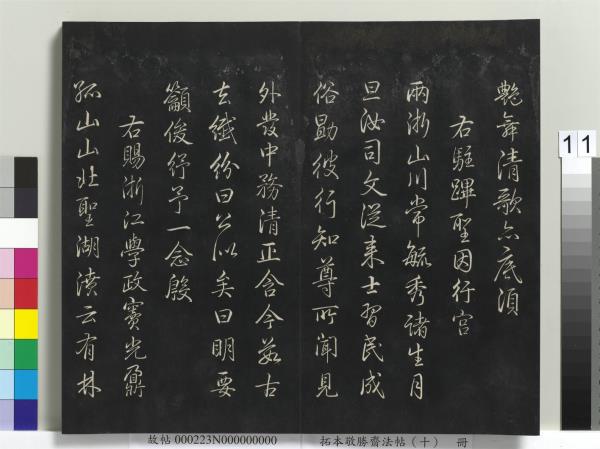 艷舞清歌亦底須
右駐蹕聖因行宮
兩浙山川常毓秀諸生月
旦汝司文從來士習民成
俗勖彼行知尊所聞見
外發中務清正含今茹古
去纖紛曰公似矣曰明要
籲俊紓予一念殷
右賜浙江學政竇光鼐
孤山山北聖湖濆云有林
11
故帖 000223N000000000
拓本敬勝齋法帖(十) 冊